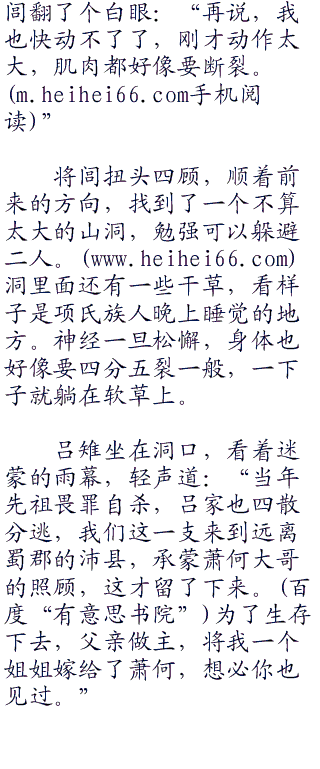 闾翻了个白眼：“再说，我
也快动不了了，刚才动作太
大，肌肉都好像要断裂。
(m.heihei66.com手机阅
读)”
将闾扭头四顾，顺着前
来的方向，找到了一个不算
太大的山洞，勉强可以躲避
二人。(www.heihei66.com)
洞里面还有一些干草，看样
子是项氏族人晚上睡觉的地
方。神经一旦松懈，身体也
好像要四分五裂一般，一下
子就躺在软草上。
吕雉坐在洞口，看着迷
蒙的雨幕，轻声道：“当年
先祖畏罪自杀，吕家也四散
分逃，我们这一支来到远离
蜀郡的沛县，承蒙萧何大哥
的照顾，这才留了下来。(百
度“有意思书院”)为了生存
下去，父亲做主，将我一个
姐姐嫁给了萧何，想必你也
见过。”